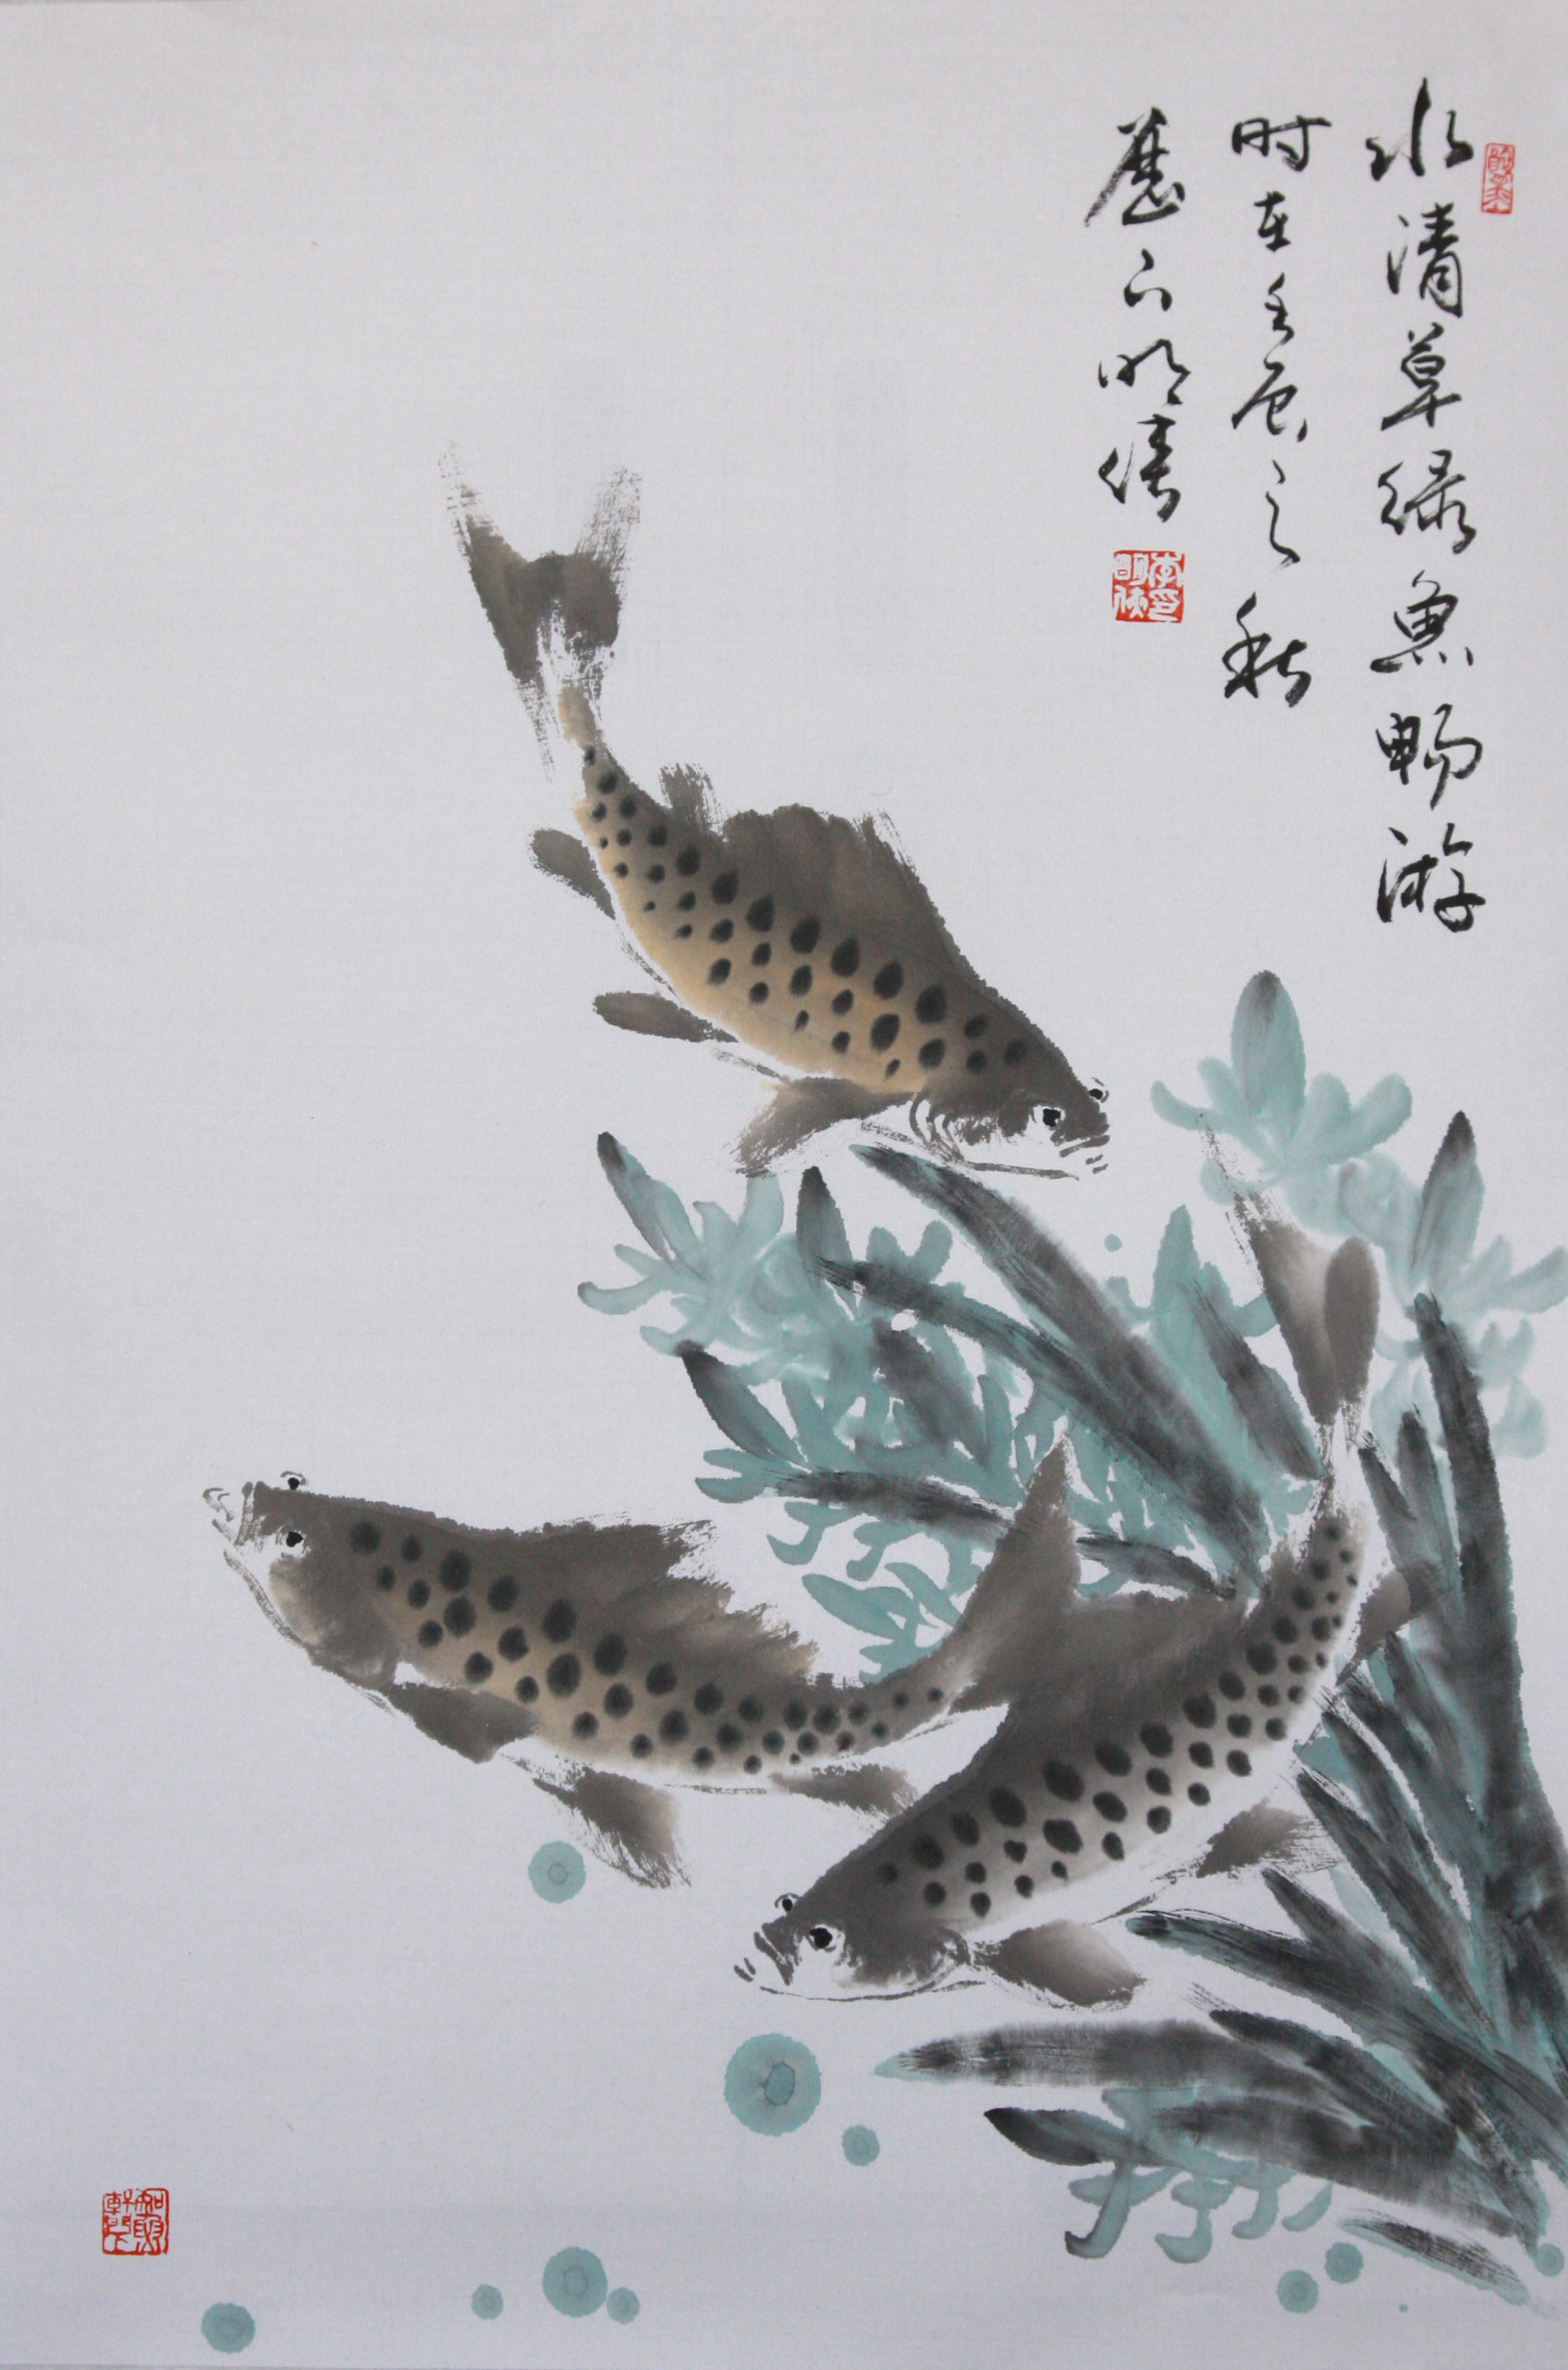 水清草绿鱼畅游
时在壬辰之秋
歷下明